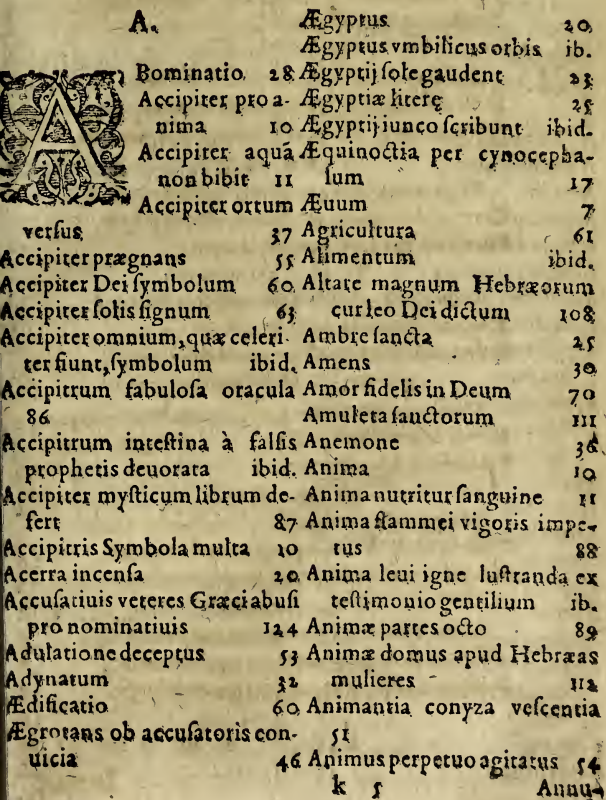 A.
ABominatio 28
Accipiter pro a-
nima 10
Accipiter aquã
non bibit 11
Accipiter ortum
versus 37
Accipiter prægnans 55
Accipiter Dei ſymbolum 60
Accipiter ſolis ſignum 63
Accipiter omnium, quæ celeri-
ter fiunt, ſymbolum ibid.
Accipitrum fabuloſa oracula
86
Accipitrum inteſtina à falſis
prophetis deuorata ibid.
Accipiter myſticum librum de-
fert 87
Accipitris Symbola multa 10
Acerra incenſa 20
Accuſatiuis veteres Græci abuſi
pro nominatiuis 124
Adulatione deceptus 53
Adynatum 32
Ædificatio 60
Ægrotans ob accuſatoris con-
uicia 46
Ægyptus 20
Ægyptus vmbilicus orbis ib.
Ægyptij ſole gaudent 23
Ægyptiæ literę 25
Ægyptij iunco ſcribunt ibid.
Æquinoctia per cynocepha-
lum 17
Æuum 7
Agricultura 61
Alimentum ibid.
Altare magnum Hebræorum
cur leo Dei dictum 108
Ambre ſancta 25
Amens 30
Amor fidelis in Deum 70
Amuleta ſanctorum 111
Anemone 36
Anima 10
Anima nutritur ſanguine 11
Anima flammei vigoris impe-
tus 88
Anima leui igne luſtranda ex
teſtimonio gentilium ib.
Animæ partes octo 89
Animæ domus apud Hebræas
mulieres 112
Animantia conyza veſcentia
51
Animus perpetuo agitatus 54
k 5 Annu-